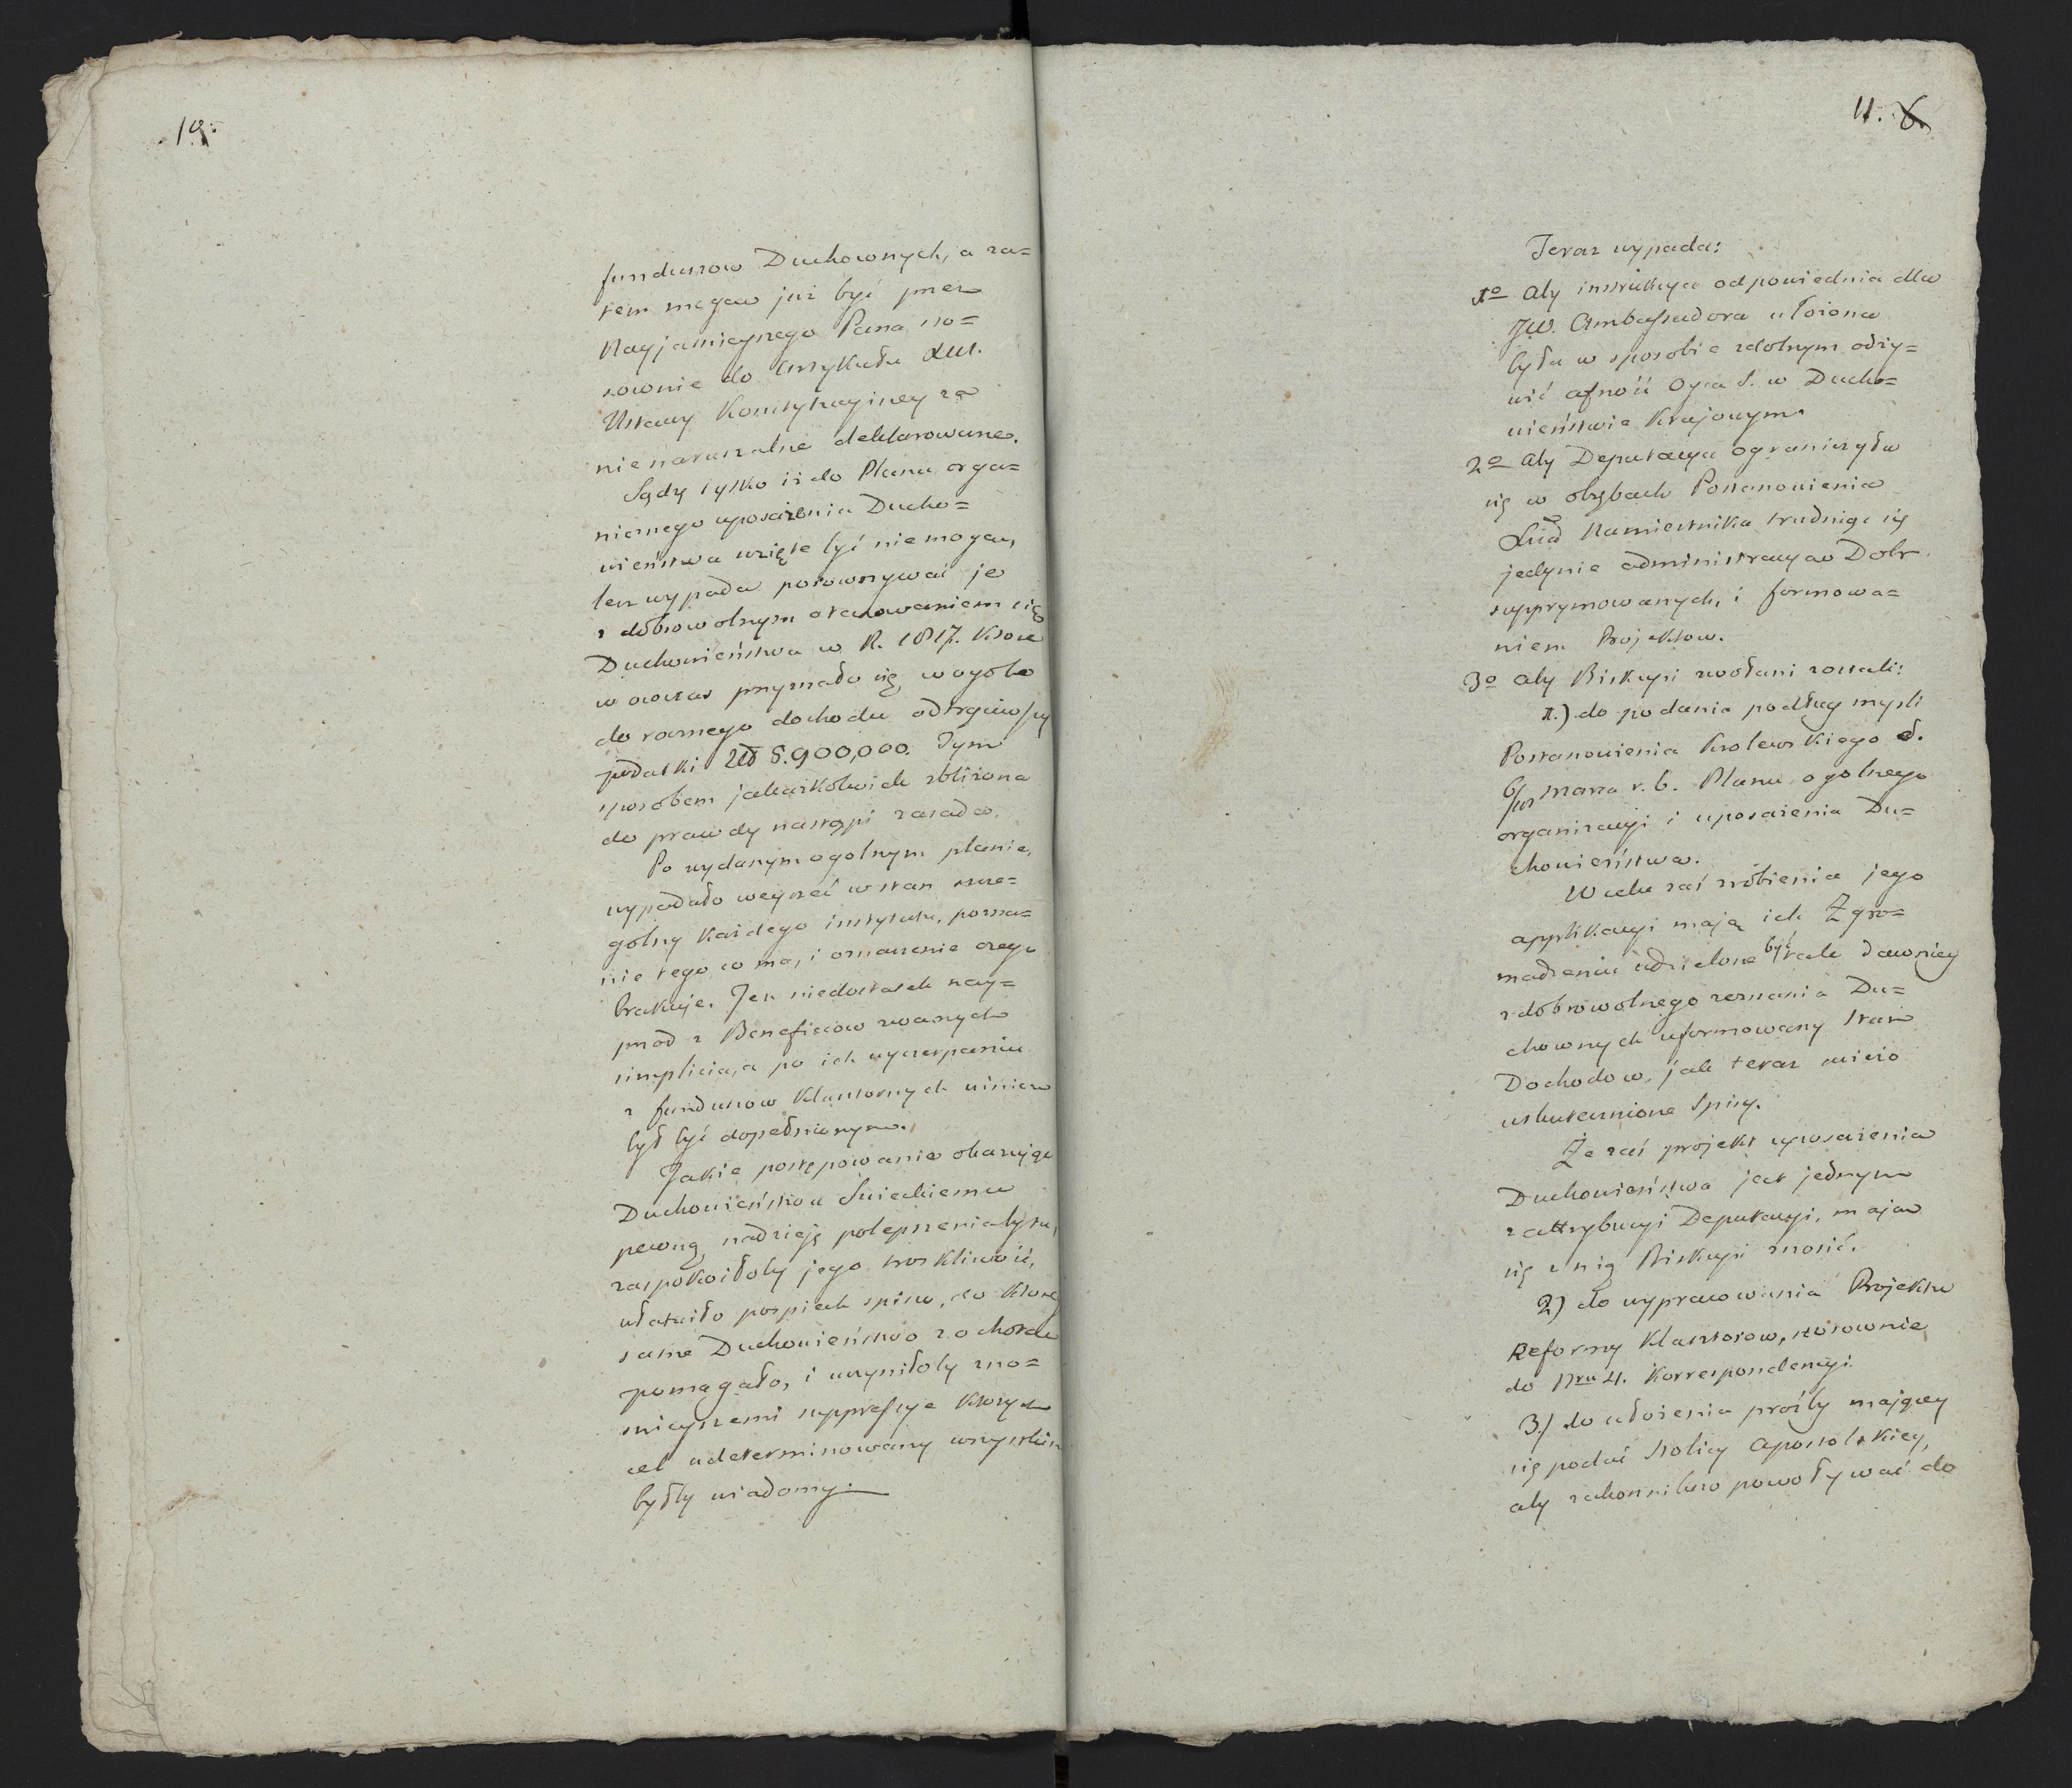 10.
funduszow Duchownych, a za=
tem mogą już być przez
Nayjaśnieyszego Pana sto=
sownie do Artykułu XIII.
Ustawy Konstytucyiney za
nienaruszalne deklarowane.
Sądzę tylko iż do Planu orga=
nicznego uposażenia Ducho=
wieństwa wzięte być niemogą,
lecz wypada porownywać je
z dobrowolnym otaxowaniem się
Duchowieństwa w R. 1817. ktore
w owczas przyznało się, wogóle
do rocznego dochodu odtrąciwszy
podatki Złł 5.900,000. Tym
sposobem jakażkolwiek zbliżona
do prawdy nastąpi zasada.
Po wydanym ogolnym planie,
wypadało weyrzeć w stan szcze=
golny każdego instytutu, pozna=
nie tego co ma, i oznaczenie czego
brakuje. Ten niedostatek nay=
przod z Beneficiow zwanych
simplicia, a po ich wyczerpaniu
z funduszow Klasztornych winien
był być dopełnionym.
Takie postępowanie okazując
Duchowieństwu Swieckiemu
pewną nadzieję polepszenia bytu,
zaspokoiłoby jego troskliwość,
ułatwiło pospiech spisu, do ktorego
same Duchowieństwo z ochotą
pomagało, i uczyniłoby zno=
śnieyszemi suppressye ktorych
cel udeterminowany wszystkim
byłby wiadomy.
11. 6.
Teraz wypada:
1o Aby instrukcya odpowiednia dla
JW. Ambassadora ułożona
była w sposobie zdolnym oży=
wić ufność Oyca S. w Ducho=
wieństwie Krajowym.
2o Aby Deputacya ograniczyła
się w obrębach Postanowienia
Xcia Namiestnika trudniąc się
jedynie administracyą Dobr
supprymowanych, i formowa=
niem Projektow.
3o Aby Biskupi zwołani zostali:
1.) do podania podług mysli
Postanowienia Krolewskiego d.
6/18 Marca r. b. Planu ogolnego
organizacyi i uposażenia Du=
chowieństwa.
W celu zaś zrobienia jego
applikacyi mają ich Zgro=
madzeniu udzielone być tak dawniey
z dobrowolnego zeznania Du=
chownych uformowany Stan
Dochodow, jak teraz świeżo
uskutecznione Spisy.
Że zaś projekt uposażenia
Duchowieństwa jest jednym
z attrybucyi Deputacyi, mają
się z nią Biskupi znosić.
2) do wypracowania Projektu
Reformy Klasztorow, stosownie
do Nru 4. Korrespondencyi.
3.) do ułożenia prośby mającey
się podać Stolicy Apostolskiey,
aby zakonnikow powoływać do